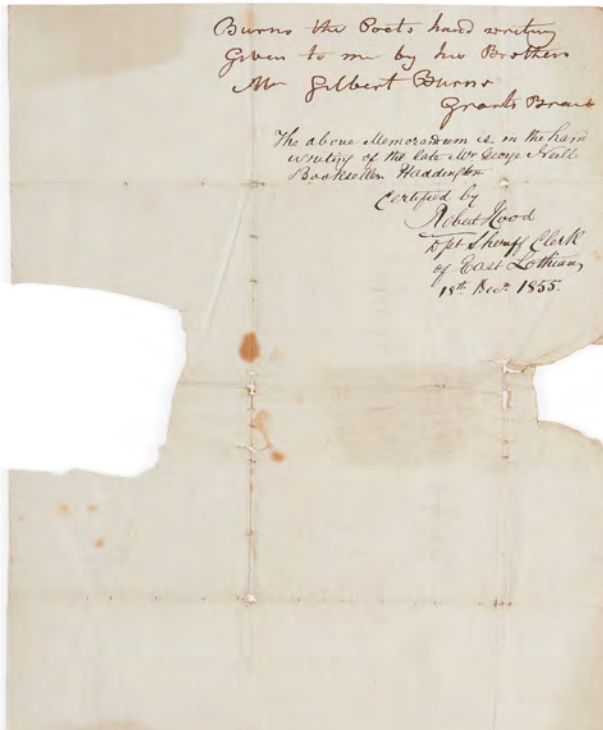 Burns the Poets hand writing
Given to me by his Brother
Mr Gilbert Burns
Grants Braes
The above Memorandum is in the hand
writing of the late Mr George Neill
Bookseller Haddington
Certified by
Robert Hood
Dpt Sheriff Clerk
of East Lothian
18th Decr. 1855.